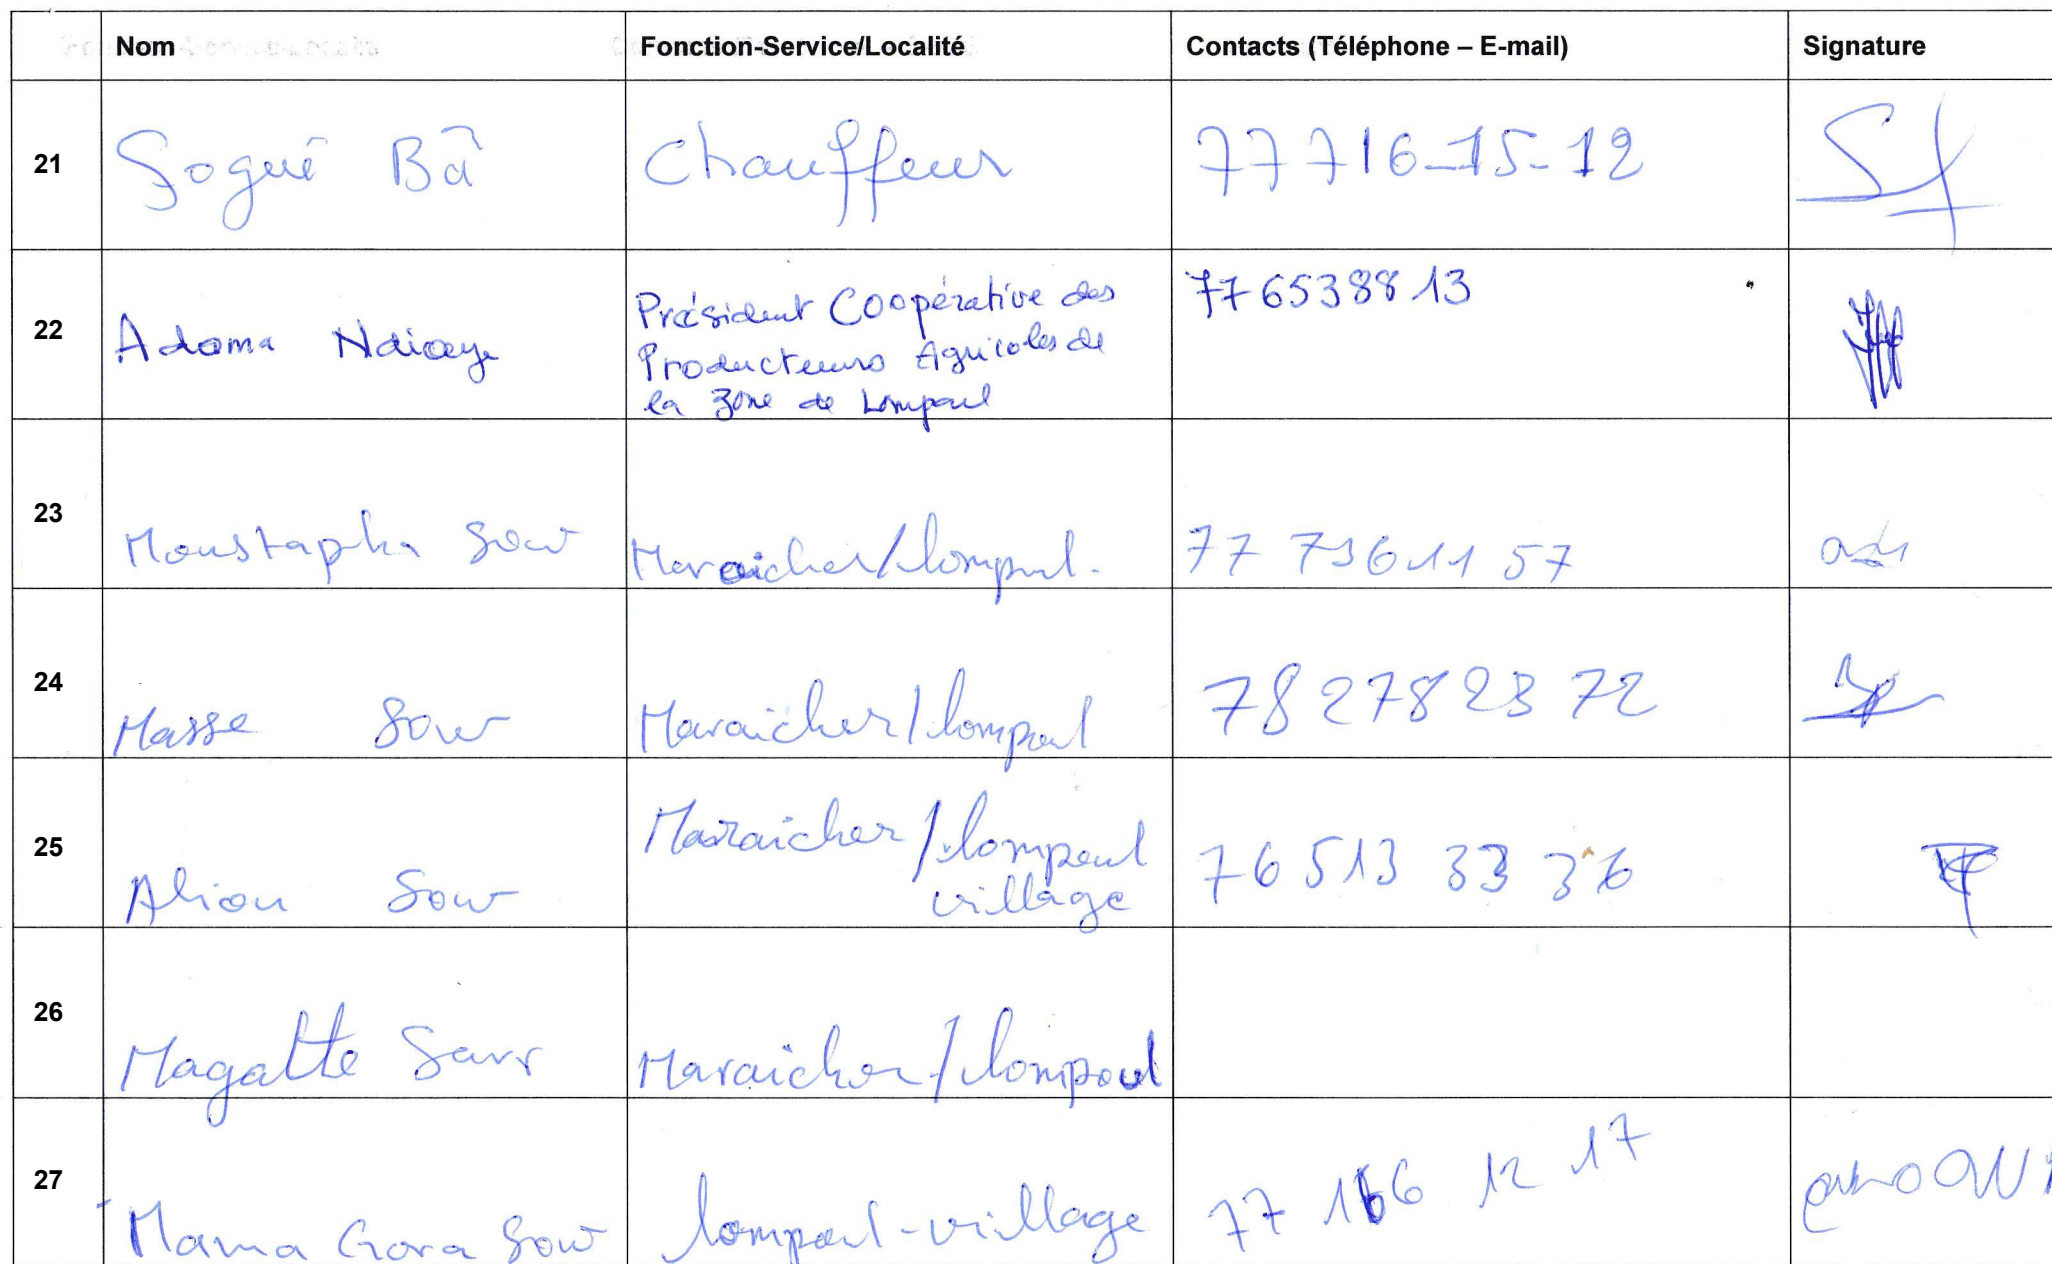 Nom Fonction-Service/Localité Contacts (Téléphone – E-mail) Signature
21 Sogué Bâ Chauffeur 77 716-15-12
22 Adama Ndiaye Président Coopérative des 77 653 88 13
Producteurs Agricoles de
la zone de Lompoul
23 Moustapha Sow Maraicher/lompoul. 77 736 11 57
24 Masse Sow Maraîcher/lompoul 78 278 23 72
25 Aliou Sow Maraicher/lompoul 76 513 33 36
village
26 Magatte Sarr Maraicher/lompoul
27 Mama Gora Sow lompoul-village 77 166 12 17